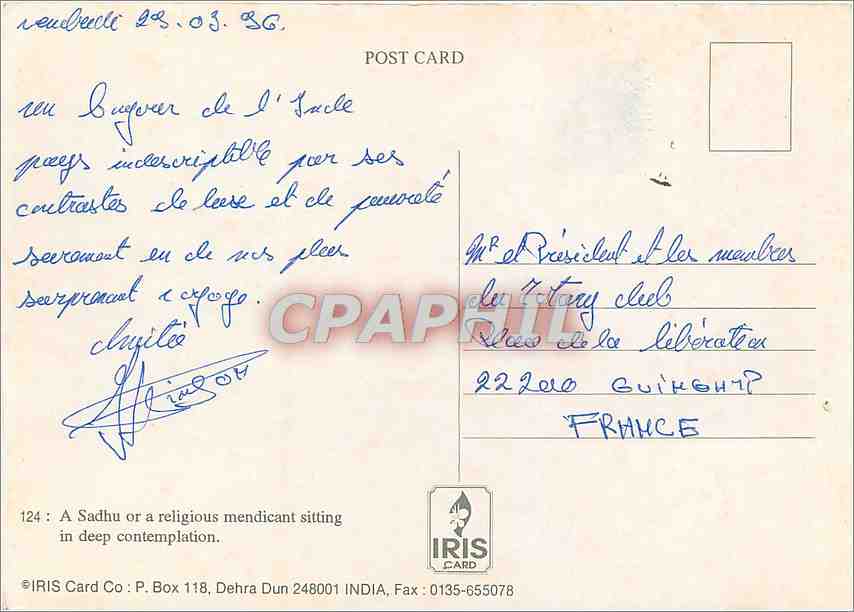 vendredi 29.03.96.
POST CARD
un bonjour de l'Inde
pays indescriptible par ses
contrastes de luxe et de pauvreté
surement un de nos plus
surprenant voyage.
Amitié
Mr et Président et les membres
du Rotary club
Place de la libération
22200 GUINGAMP
FRANCE
CPAPHIL
124 : A Sadhu or a religious mendicant sitting
in deep contemplation.
IRIS
CARD
©IRIS Card Co : P. Box 118, Dehra Dun 248001 INDIA, Fax : 0135-655078